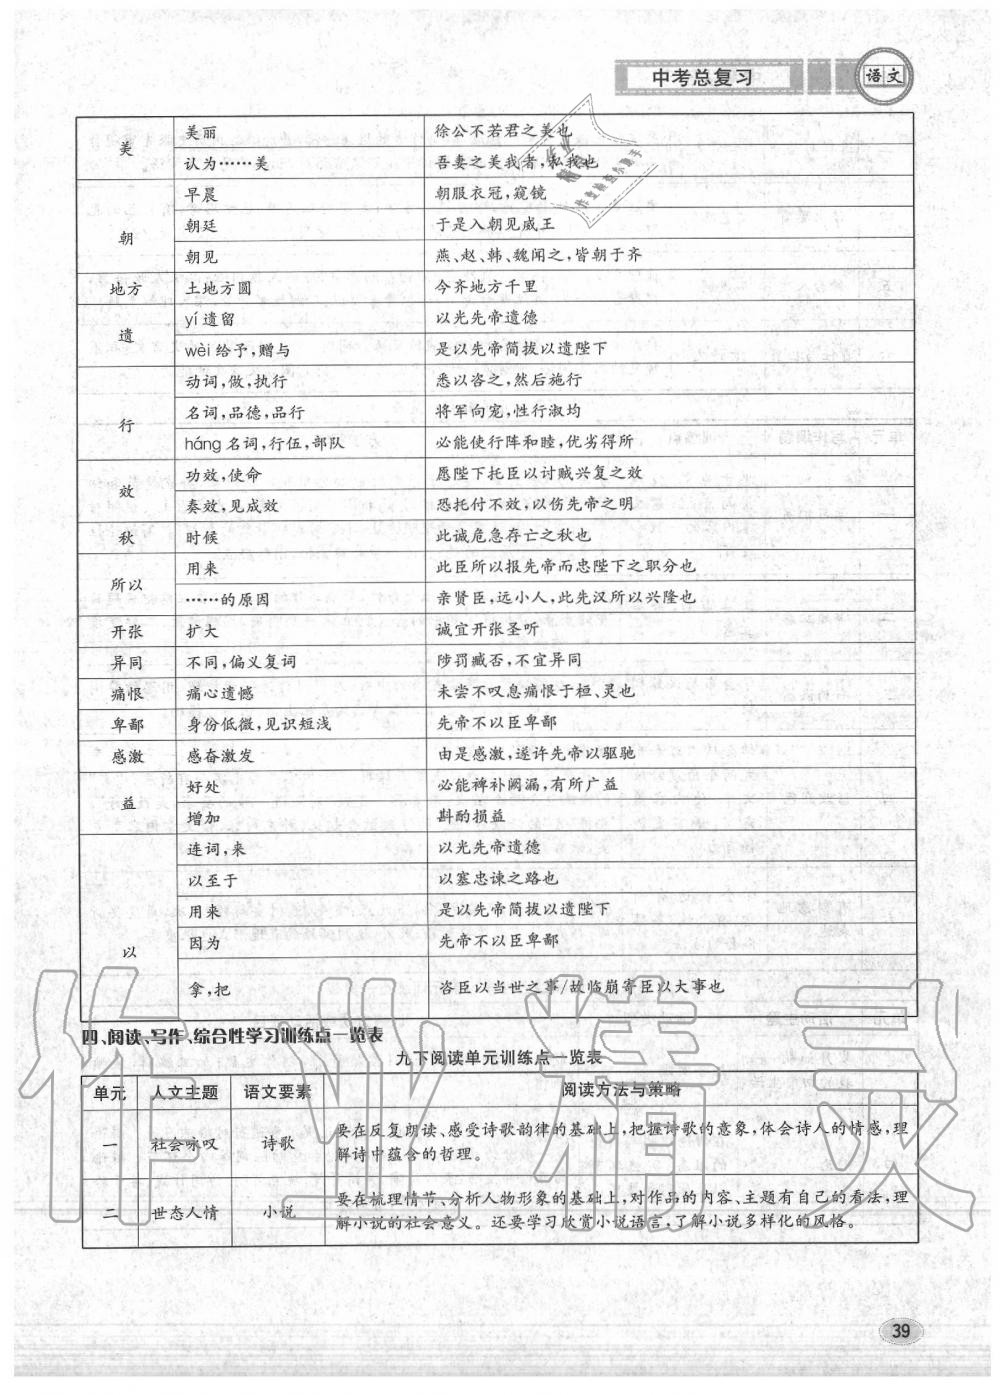 中考总复习
语文
美 美丽 徐公不若君之美也
认为……美 吾妻之美我者,私我也
朝 早晨 朝服衣冠,窥镜
朝廷 于是入朝见威王
朝见 燕、赵、韩、魏闻之,皆朝于齐
地方 土地方圆 今齐地方千里
遗 yí 遗留 以光先帝遗德
wèi 给予,赠与 是以先帝简拔以遗陛下
行 动词,做,执行 悉以咨之,然后施行
名词,品德,品行 将军向宠,性行淑均
háng 名词,行伍,部队 必能使行阵和睦,优劣得所
效 功效,使命 愿陛下托臣以讨贼兴复之效
奏效,见成效 恐托付不效,以伤先帝之明
秋 时候 此诚危急存亡之秋也
所以 用来 此臣所以报先帝而忠陛下之职分也
……的原因 亲贤臣,远小人,此先汉所以兴隆也
开张 扩大 诚宜开张圣听
异同 不同,偏义复词 陟罚臧否,不宜异同
痛恨 痛心遗憾 未尝不叹息痛恨于桓、灵也
卑鄙 身份低微,见识短浅 先帝不以臣卑鄙
感激 感奋激发 由是感激,遂许先帝以驱驰
益 好处 必能裨补阙漏,有所广益
增加 斟酌损益
以 连词,来 以光先帝遗德
以至于 以塞忠谏之路也
用来 是以先帝简拔以遗陛下
因为 先帝不以臣卑鄙
拿,把 咨臣以当世之事/故临崩寄臣以大事也
四、阅读、写作、综合性学习训练点一览表
九下阅读单元训练点一览表
单元 人文主题 语文要素 阅读方法与策略
一 社会咏叹 诗歌 要在反复朗读、感受诗歌韵律的基础上,把握诗歌的意象,体会诗人的情感,理
解诗中蕴含的哲理。
二 世态人情 小说 要在梳理情节、分析人物形象的基础上,对作品的内容、主题有自己的看法,理
解小说的社会意义。还要学习欣赏小说语言,了解小说多样化的风格。
作业精灵
39